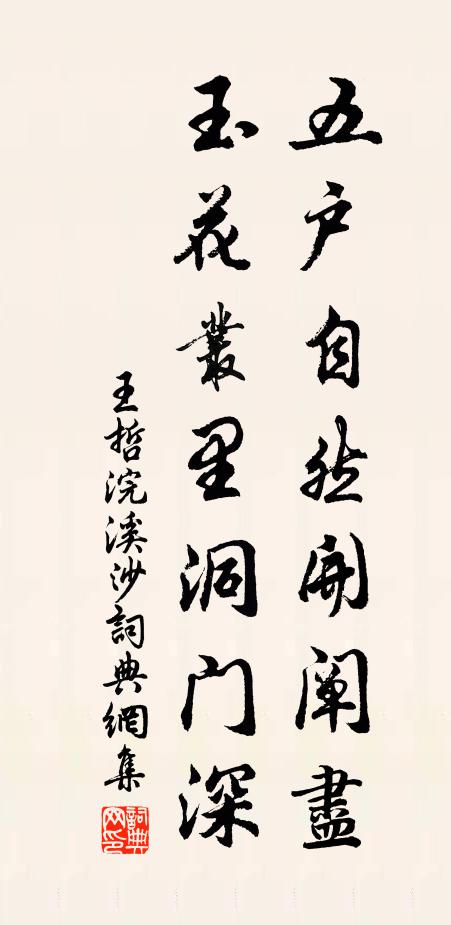 五户自然開闡盡
玉花叢里洞门深
王哲浣溪沙詞典網集
詞典網印